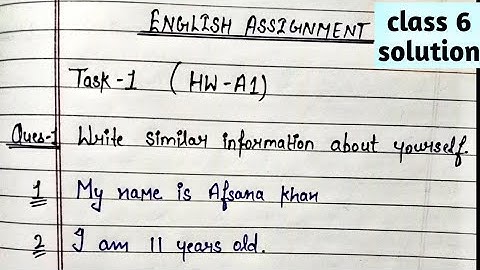 ENGLISH ASSIGNMENT
class 6
solution
Task-1 (HW-A1)
Ques-1 Write similar information about yourself.
1 My name is Afsana khan
2 I am 11 years old.